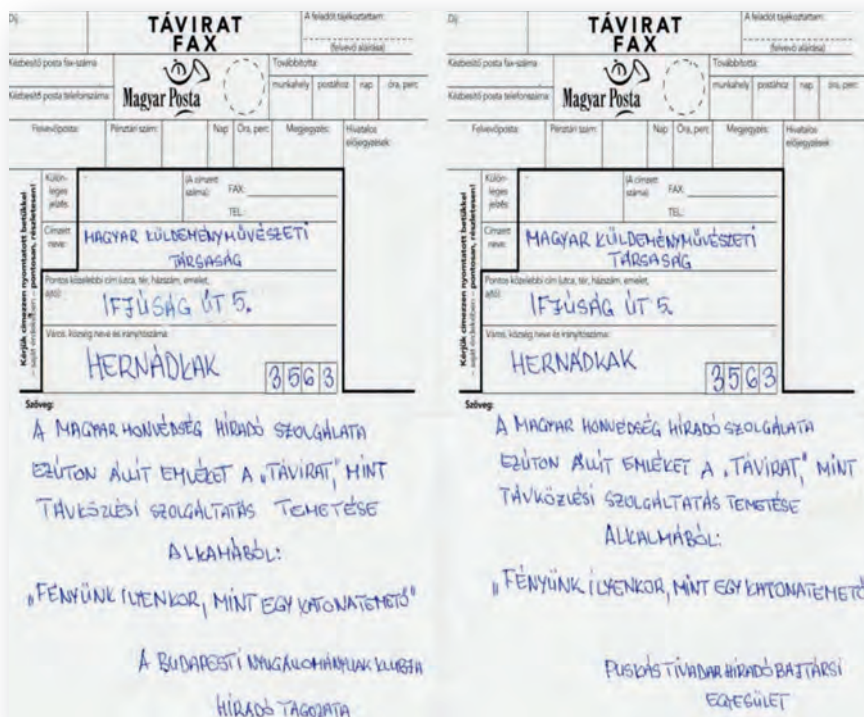 Díj:
TÁVIRAT
FAX
A feladót tájékoztattam:
(felvevő aláírása)
Kézbesítő posta fax-száma
Továbbította:
Kézbesítő posta telefonszáma
Magyar Posta
munkahely postához nap óra, perc
Felvevőposta: Pénztári szám: Nap Óra, perc Megjegyzés: Hivatalos
előjegyzések:
Kérjük címezzen nyomtatott betűkkel
– saját érdekében – pontosan, részletesen!
Külön-
leges
jelzés:
(A címzett
száma)
FAX:
TEL.:
Címzett
neve:
MAGYAR KÜLDEMÉNYMŰVÉSZETI
TÁRSASÁG
Pontos közelebbi cím (utca, tér, házszám, emelet,
ajtó):
IFJÚSÁG ÚT 5.
Város, község neve és irányítószáma:
HERNÁDKAK 3563
Szöveg:
A MAGYAR HONVÉDSÉG HÍRADÓ SZOLGÁLATA
EZÚTON ÁLLÍT EMLÉKET A „TÁVIRAT”, MINT
TÁVKÖZLÉSI SZOLGÁLTATÁS TEMETÉSE
ALKAMÁBÓL:
„FÉNYÜNK ILYENKOR, MINT EGY KATONATEMETŐ”
A BUDAPESTI NYUGÁLLOMÁNYÚAK KLUBJA
HÍRADÓ TAGOZATA
Díj:
TÁVIRAT
FAX
A feladót tájékoztattam:
(felvevő aláírása)
Kézbesítő posta fax-száma
Továbbította:
Kézbesítő posta telefonszáma
Magyar Posta
munkahely postához nap óra, perc
Felvevőposta: Pénztári szám: Nap Óra, perc Megjegyzés: Hivatalos
előjegyzések:
Kérjük címezzen nyomtatott betűkkel
– saját érdekében – pontosan, részletesen!
Külön-
leges
jelzés:
(A címzett
száma)
FAX:
TEL.:
Címzett
neve:
MAGYAR KÜLDEMÉNYMŰVÉSZETI
TÁRSASÁG
Pontos közelebbi cím (utca, tér, házszám, emelet,
ajtó):
IFJÚSÁG ÚT 5.
Város, község neve és irányítószáma:
HERNÁDKAK 3563
Szöveg:
A MAGYAR HONVÉDSÉG HÍRADÓ SZOLGÁLATA
EZÚTON ÁLLÍT EMLÉKET A „TÁVIRAT”, MINT
TÁVKÖZLÉSI SZOLGÁLTATÁS TEMETÉSE
ALKALMÁBÓL:
„FÉNYÜNK ILYENKOR, MINT EGY KATONATEMETŐ
PUSKÁS TIVADAR HÍRADÓ BAJTÁRSI
EGYESÜLET